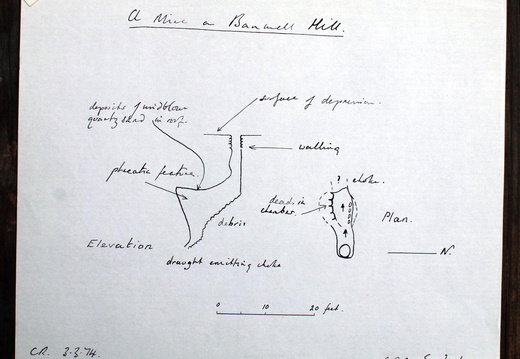 A Mine on Banwell Hill.
deposits of windblown
quartz sand in roof.
surface of depression.
walling
phreatic features.
? choke.
deads in
chamber.
Plan.
debris
Elevation
N.
draught emitting choke
0 10 20 feet.
CR. 3.3.74.